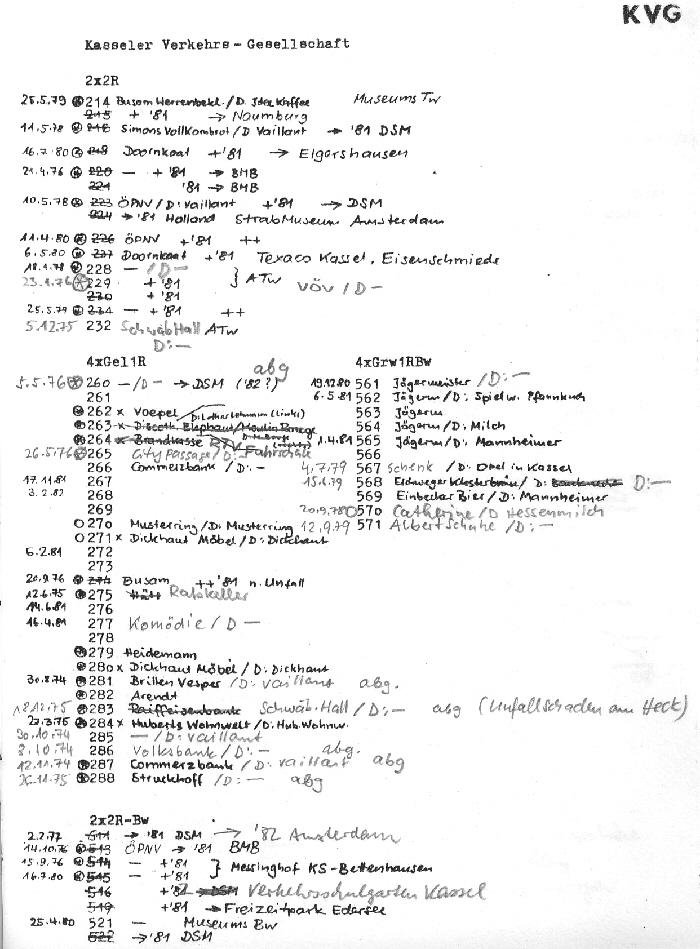 KVG
Kasseler Verkehrs-Gesellschaft
2x2R
25.5.79 214 Busam Herrenbekl./D. Idee Kaffee Museums Tw
215 + '81 → Naumburg
11.5.78 216 Simons Vollkornbrot/D Vaillant → '81 DSM
16.7.80 219 Doornkaat +'81 → Elgershausen
21.4.76 220 — +'81 → BMB
221 '81 → BMB
10.5.78 223 ÖPNV/D: Vaillant +'81 → DSM
224 → '81 Holland StrabMuseum Amsterdam
11.4.80 226 ÖPNV +'81 ++
6.5.80 227 Doornkaat +'81 Texaco Kassel, Eisenschmiede
18.1.78 228 — /D— } ATw
23.1.76 229 +'81 VÖV/D—
230 +'81
25.5.79 231 — +'81 ++
5.12.75 232 Schwäb Hall ATw
D:—
4xGel1R
5.5.76 260 —/D— → DSM ('82?) abg
261
262 x Voepel
263 x Discoth. Elephant/Moulin Rouge
264 x Brandkasse
26.5.76 265 City Passage/D: Fahrschule
266 Commerzbank /D:—
17.11.81 267
3.2.82 268
269
270 Musterring/D: Musterring
271 x Dickhaut Möbel/D: Dickhaut
6.2.81 272
273
20.9.76 274 Busam ++'81 n. Unfall
12.6.75 275 Ratskeller
14.6.81 276
16.4.81 277 Komödie/D—
278
279 Heidemann
280 x Dickhaut Möbel/D: Dickhaut
30.8.74 281 Brillen Vesper/D: Vaillant abg.
282 Arendt
18.12.75 283 Raiffeisenbank Schwäb. Hall/D:— abg (Unfallschaden am Heck)
22.3.75 284 x Huberts Wohnwelt/D: Hub. Wohnw.
30.10.74 285 —/D: Vaillant
8.10.74 286 Volksbank/D:— abg.
12.11.74 287 Commerzbank/D: Vaillant abg
288 Struckhoff/D:— abg
4xGrw1RBw
19.12.80 561 Jägermeister /D:—
6.5.81 562 Jägerm/D: Spielw. Pfannkuch
563 Jägerm
564 Jägerm/D: Milch
1.4.81 565 Jägerm/D: Mannheimer
566
4.7.79 567 Schenk /D: Opel in Kassel
15.1.79 568 Eschweger Klosterbräu/D: D:—
569 Einbecker Bier/D: Mannheimer
20.9.78 570 Catherine/D Hessenmilch
12.9.79 571 Albert Schuhe /D:—
2x2R-Bw
2.2.77 511 → '81 DSM → '82 Amsterdam
14.10.76 513 ÖPNV → '81 BMB
15.9.76 514 — +'81 } Messinghof KS-Bettenhausen
16.7.80 515 — +'81
516 +'82 → DSM Verkehrsschulgarten Kassel
519 +'81 → Freizeitpark Edersee
25.4.80 521 — Museums Bw
522 → '81 DSM